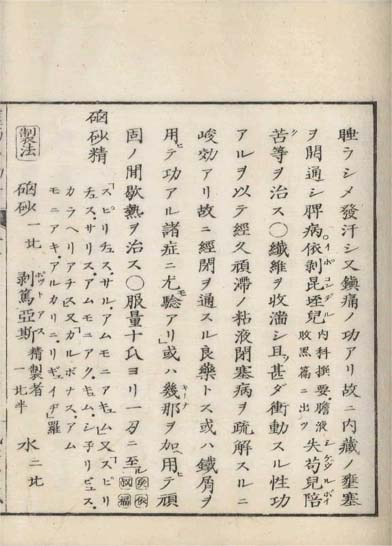 睡ラシメ發汗シ又鎮痛ノ功アリ故ニ内藏ノ壅塞
ヲ開通シ脾病依剥昆垤兒 内科撰要 膽液 失苟兒陪
イポコンデル 牧黒篇ニ出ツ シケウルボイ
苦等ヲ治ス〇纖維ヲ收濇シ且甚ダ衝動スル性功
アルヲ以テ經久頑滯ノ粘液閉塞病ヲ疏解スルニ
峻効アリ故ニ經閉ヲ通スル良藥トス或ハ鐵屑ヲ
用テ功アル諸症ニ尤騐アリ或ハ幾那ヲ加ヘ用テ頑
キーナ
固ノ間歇熱ヲ治ス〇服量十氏ヨリ一刄ニ至ル
磠砂精
スピリチュス、サルアムモニアキュム又スピリ
チュス、サリス、アムモニアクキュム、シ子リピュス、
カラヘリアチピス又カルボナス、アム
モニアキ、アルカリニ、リギイヂ 羅
製法 磠砂 一比 剥篤亞斯 精製者 一比半 水 二比
ポットアス